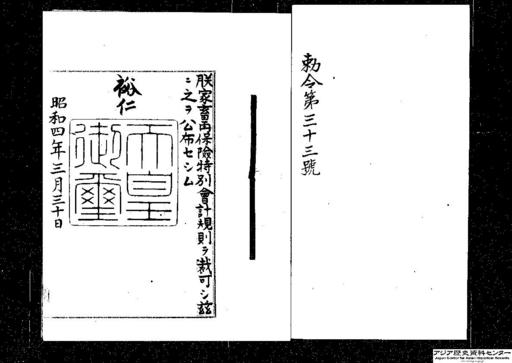 勅令第三十三號
朕家畜再保險特別會計規則ヲ裁可シ茲
ニ之ヲ公布セシム
裕仁
天皇
御璽
昭和四年三月三十日
アジア歴史資料センター
Japan Center for Asian Historical Records